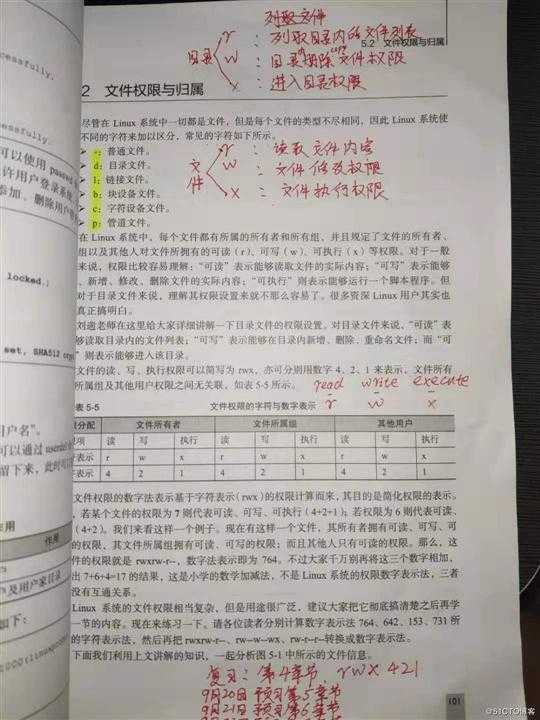 列取文件
5.2 文件权限与归属
r：列取目录内的文件列表
目录 w：目录 删除 文件权限
x：进入目录权限
2 文件权限与归属
尽管在 Linux 系统中一切都是文件，但是每个文件的类型不尽相同，因此 Linux 系统使
不同的字符来加以区分，常见的字符如下所示。
-：普通文件。
d：目录文件。
l：链接文件。
b：块设备文件。
c：字符设备文件。
p：管道文件。
r：读取文件内容
文件 w：文件修改权限
x：文件执行权限
在 Linux 系统中，每个文件都有所属的所有者和所有组，并且规定了文件的所有者、
组以及其他人对文件所拥有的可读（r）、可写（w）、可执行（x）等权限。对于一般
来说，权限比较容易理解：“可读”表示能够读取文件的实际内容；“可写”表示能够
、新增、修改、删除文件的实际内容；“可执行”则表示能够运行一个脚本程序。但
对于目录文件来说，理解其权限设置来就不那么容易了。很多资深 Linux 用户其实也
真正搞明白。
刘遄老师在这里给大家详细讲解一下目录文件的权限设置。对目录文件来说，“可读”表
够读取目录内的文件列表；“可写”表示能够在目录内新增、删除、重命名文件；而“可
”则表示能够进入该目录。
文件的读、写、执行权限可以简写为 rwx，亦可分别用数字 4、2、1 来表示，文件所有
所属组及其他用户权限之间无关联，如表 5-5 所示。
read write execute
r w x
表 5-5 文件权限的字符与数字表示
分配 文件所有者 文件所属组 其他用户
项 读 写 执行 读 写 执行 读 写 执行
表示 r w x r w x r w x
表示 4 2 1 4 2 1 4 2 1
文件权限的数字法表示基于字符表示（rwx）的权限计算而来，其目的是简化权限的表示。
，若某个文件的权限为 7 则代表可读、可写、可执行（4+2+1）；若权限为 6 则代表可读、
（4+2）。我们来看这样一个例子。现在有这样一个文件，其所有者拥有可读、可写、可
的权限，其文件所属组拥有可读、可写的权限；而且其他人只有可读的权限。那么，这
件的权限就是 rwxrw-r--，数字法表示即为 764。不过大家千万别再将这三个数字相加，
出 7+6+4=17 的结果，这是小学的数学加减法，不是 Linux 系统的权限数字表示法，三者
没有互通关系。
Linux 系统的文件权限相当复杂，但是用途很广泛，建议大家把它彻底搞清楚之后再学
一节的内容。现在来练习一下。请各位读者分别计算数字表示法 764、642、153、731 所
的字符表示法，然后再把 rwxrw-r--、rw--w--wx、rw-r--r--转换成数字表示法。
下面我们利用上文讲解的知识，一起分析图 5-1 中所示的文件信息。
复习：第4章节，rwx 421
9月20日 预习第5章节
9月21日 预习第6章节
101
cessfully.
essfully.
可以使用 passwd
许用户登录系
添加、删除用户
locked.)
set, SHA512
用户名”。
可以通过
留下来，此时
作用
作用
户及用户家目录
如下：
@51CTO博客